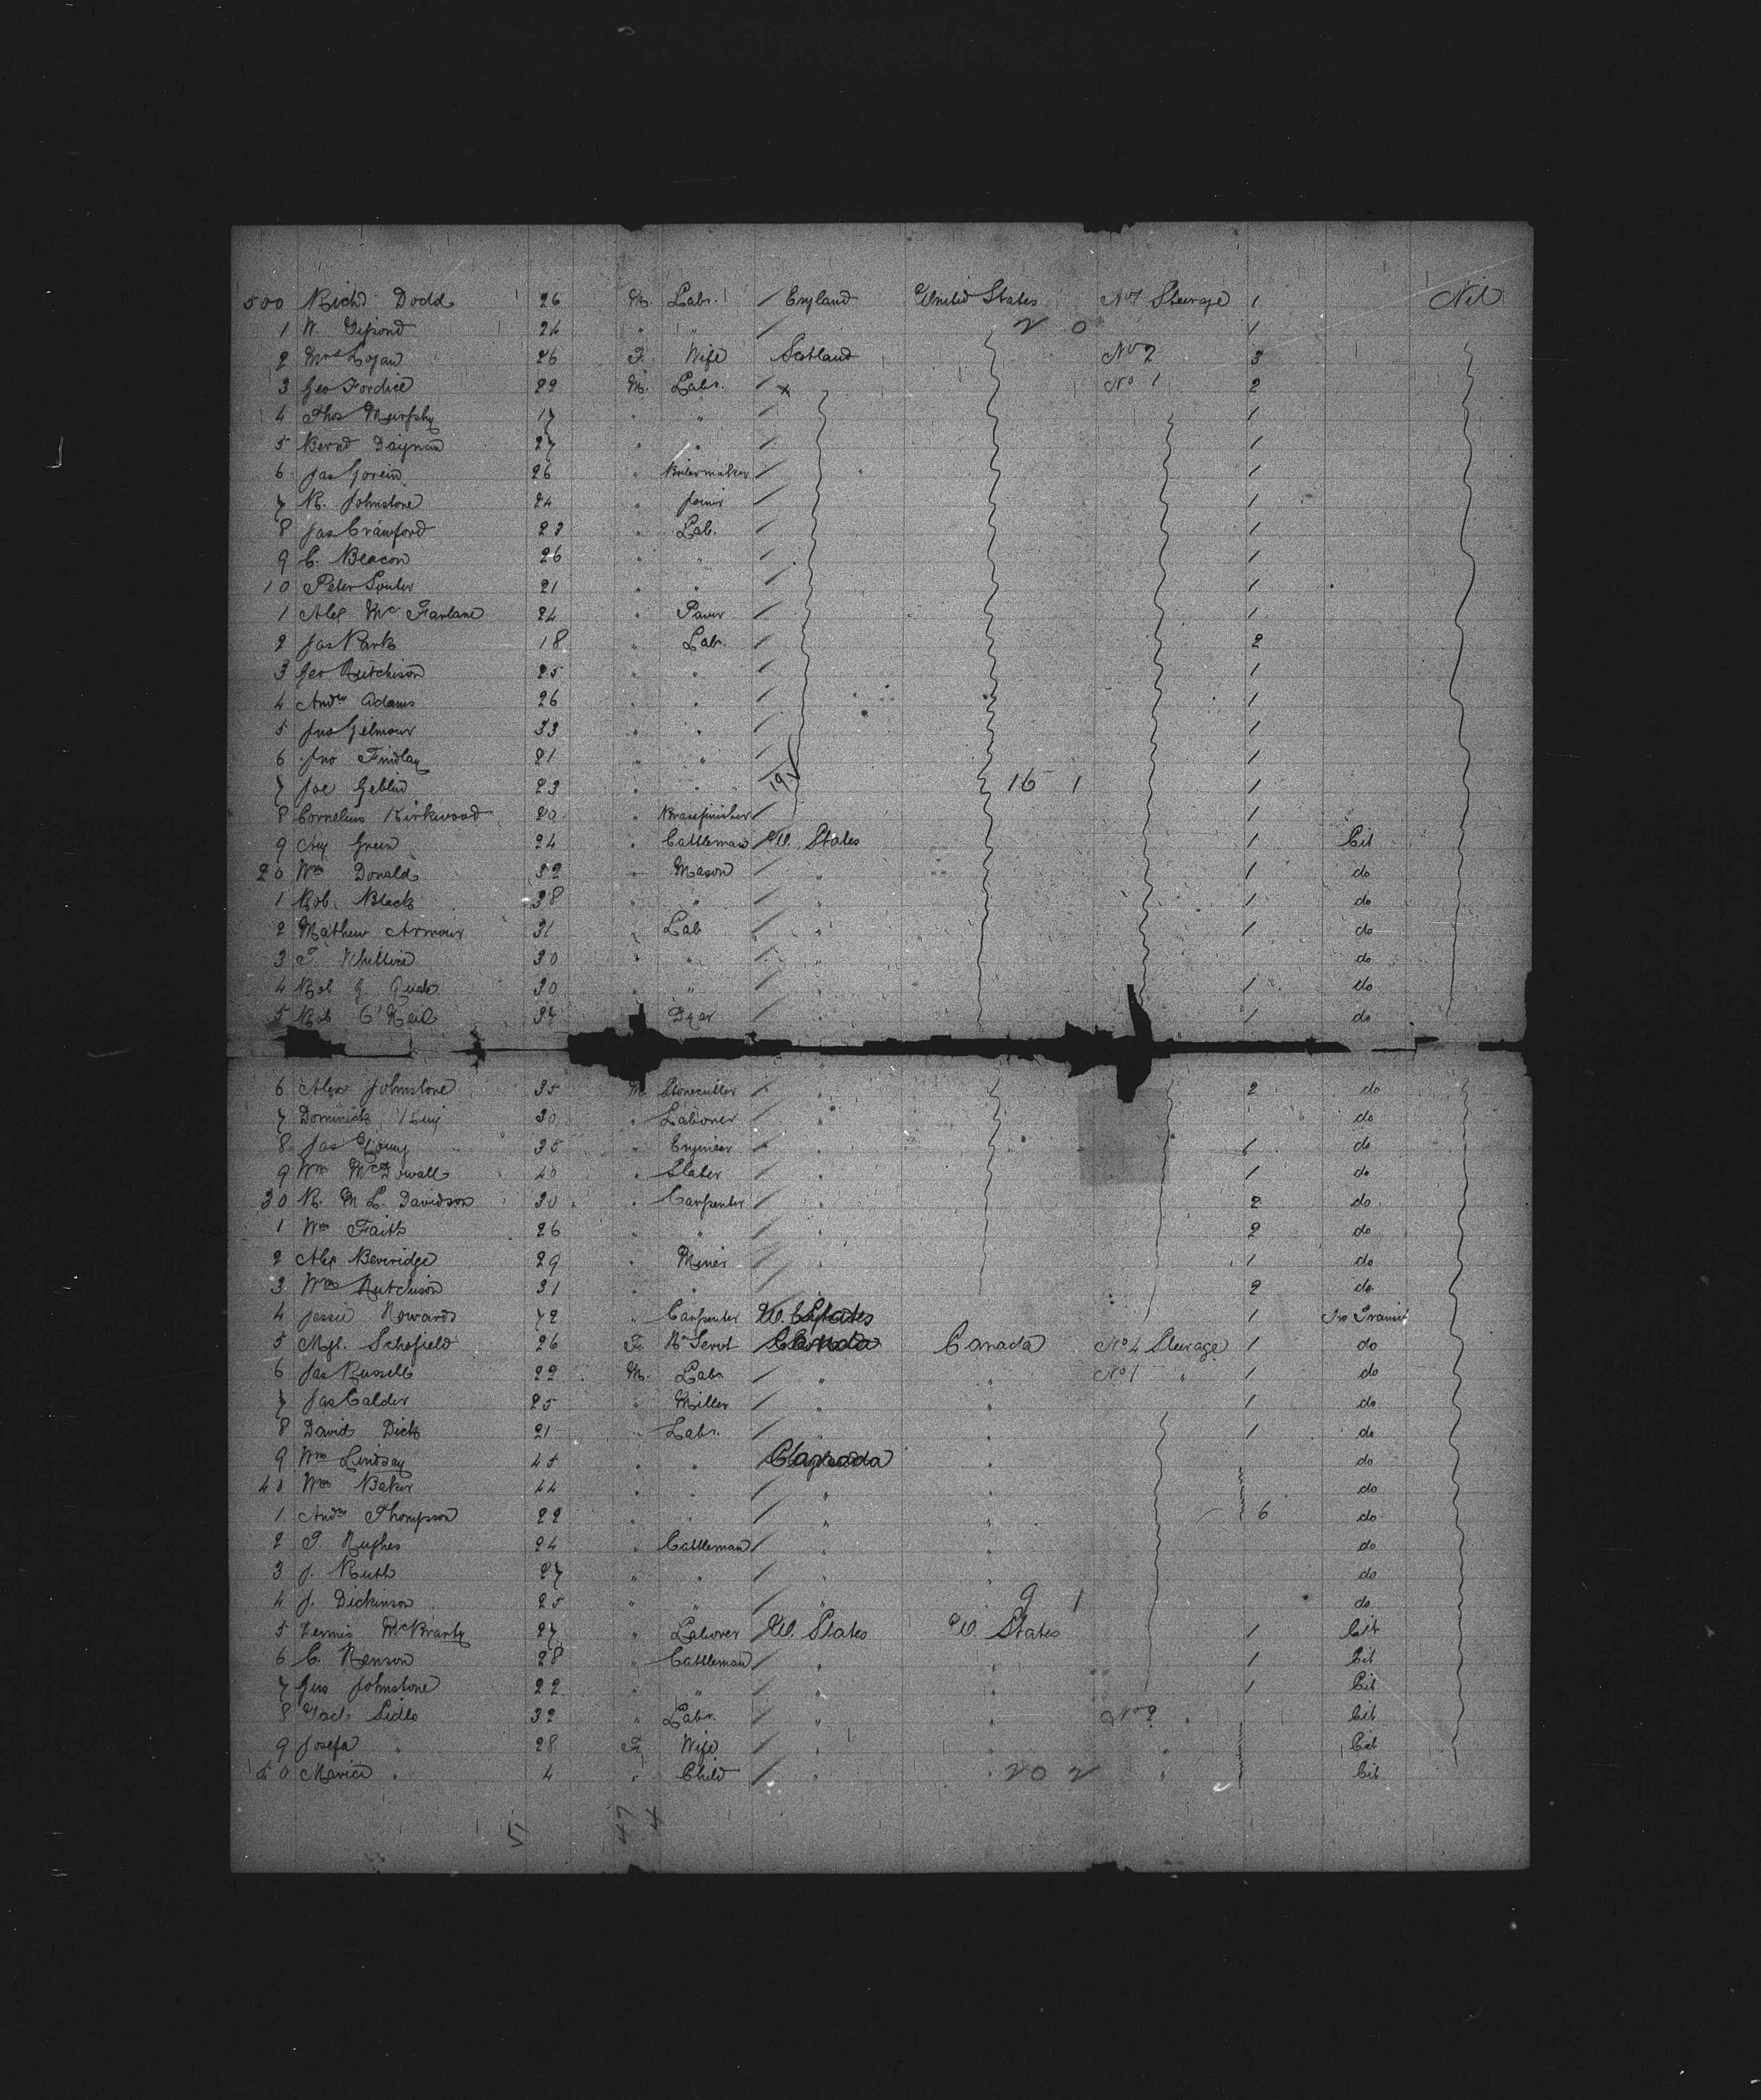 500 Richd Dodd 26 M. Labr. England United States No 1 Steerage 1 Nil
1 W. 24 " " 1
2 Mrs Logan 26 F. Wife Scotland No 2 3
3 Geo Fordice 22 M. Labr. No 1 2
4 Thos Murphy 17 " " 1
5 Bernd 27 " " 1
6 Jas 26 " Boilermaker 1
7 R. Johnstone 24 " Joiner 1
8 Jas Crawford 23 " Lab. 1
9 C. Beacon 26 " " 1
10 Peter Souter 21 " " 1
1 Alex Mc Farlane 24 " 1
2 Jas Park 18 " Labr. 2
3 Geo Hutchison 25 " " 1
4 Andw Adams 26 " " 1
5 Jno Gilmour 33 " " 1
6 Jno Findlay 21 " " 1
7 Joe 23 " " 19 16 1 1
8 Cornelius Kirkwood 20 " Brassfinisher 1
9 Green 24 " Cattleman U. States 1 Cit
20 Wm Donald 32 " Mason " 1 do
1 Rob. Black 38 " " " 1 do
2 Mathew Armour 31 " Lab " 1 do
3 T. 30 " " " do
4 Rob G. 30 " " " 1 do
5 Rob O'Neil 37 " " 1 do
6 Alex Johnstone 35 M. Stonecutter " 2 do
7 Dominick 30 " Laborer " do
8 Jas Young 35 " Engineer " 1 do
9 Wm McDowall 40 " Slater " 1 do
30 R. M L. Davidson 30 " Carpenter " 2 do
1 Wm Faith 26 " " " 2 do
2 Alex Beveridge 29 " Miner " 1 do
3 Wm Hutchison 31 " " " 2 do
4 Jessie Howard 72 " Carpenter U. States 1 In Transit
5 Mgt. Schofield 26 F. Servt Canada Canada No 4 Steerage 1 do
6 Jas Russell 22 M. Labr " " No 1 " 1 do
7 Jas Calder 25 " Miller " " 1 do
8 David Dick 21 " Labr. " " 1 do
9 Wm Lindsay 45 " " Canada " do
40 Wm Baker 44 " " " do
1 Andw Thompson 22 " " " " 6 do
2 T. Hughes 24 " Cattleman " " do
3 J. Ruth 27 " " " " do
4 J. Dickinson 25 " " " 9 1 do
5 27 " Laborer U. States U. States 1 Cit
6 C. Henson 28 " Cattleman " " 1 Cit
7 Gus Johnstone 22 " " " " 1 Cit
8 32 " Labr. " " No 2 " Cit
9 Josefa " 28 F. Wife " " " Cit
50 " 4 " Child " 20 2 " Cit